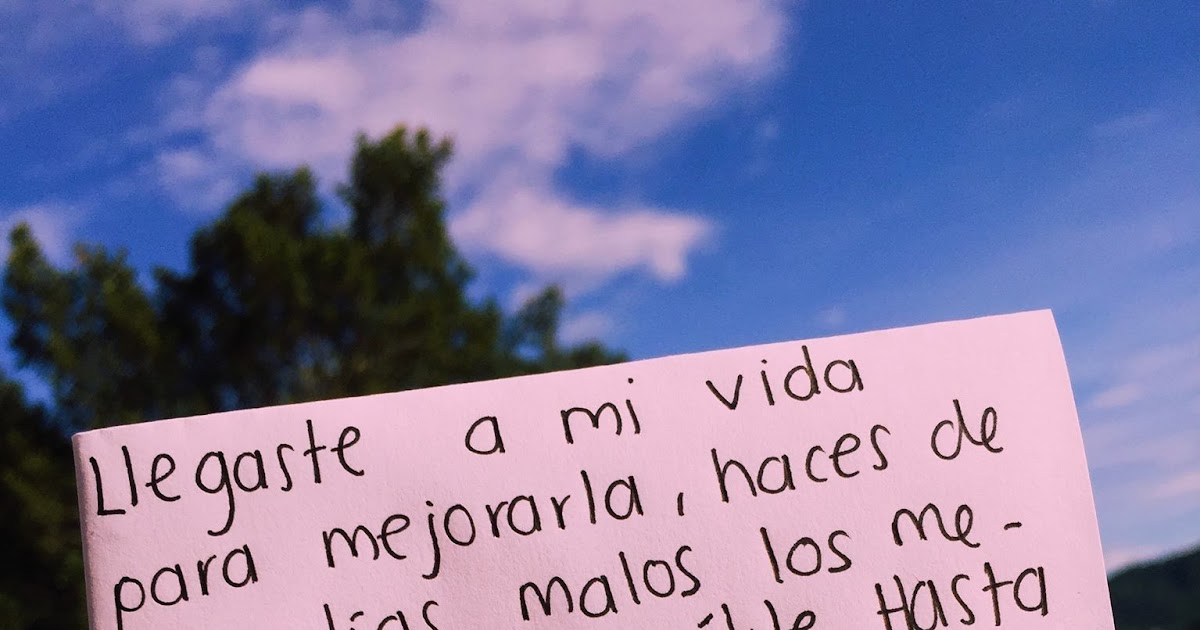 Llegaste a mi vida
para mejorarla, haces de
días malos los me-
Hasta